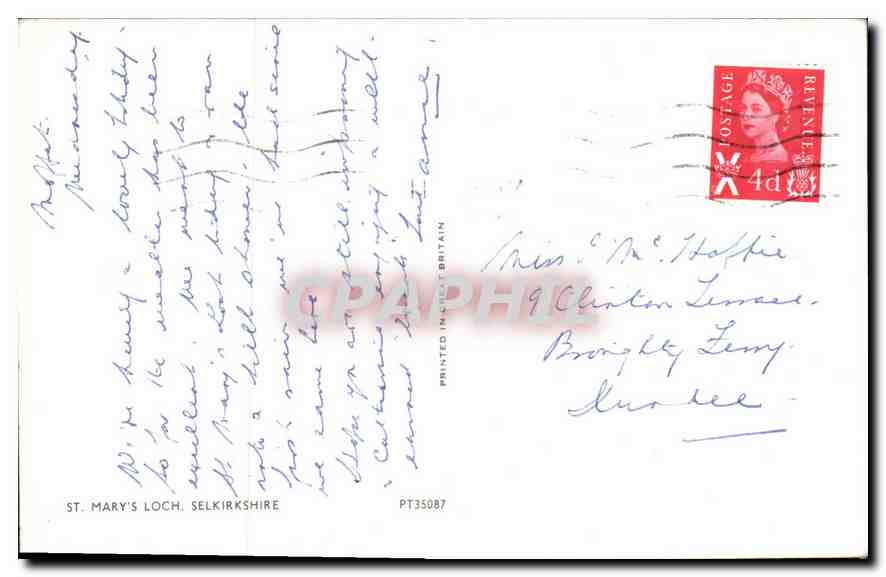 Moffat.
Wednesday.
We're having a lovely holiday
so far the weather has been
excellent. We went to
St. Mary's Loch today & ran
into a hill shower. The
first rain we've had since
we came here.
Hope you are still improving
Catherine enjoying a well
earned rest. Love Anne.
POSTAGE
REVENUE
4d
Miss C Mc Haffie
9 Clinton Terrace.
Broughty Ferry.
Dundee
PRINTED IN GREAT BRITAIN
ST. MARY'S LOCH, SELKIRKSHIRE
PT35087
CPAPHIL